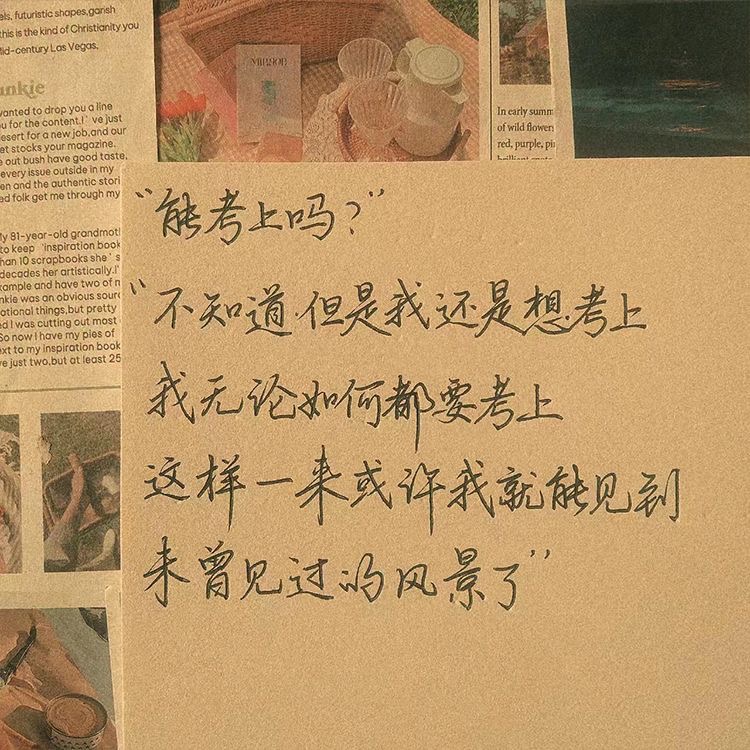 els, futuristic shapes,garish
this is the kind of Christianity you
Mid-century Las Vegas.
wanted to drop you a line
ou for the content.I've just
desert for a new job,and our
et stocks your magazine.
e out bush have good taste,
every issue outside in my
en and the authentic stori
ed folk get me through my
My 81-year-old grandmoth
to keep 'inspiration book
han 10 scrapbooks she's
decades her artistically.I'
xample and have two of m
nkie was an obvious sourc
otional things,but pretty
d I was cutting out most
So now I have my pies of
ext to my inspiration book
ve just two,but at least 25
MIRROR
In early summ
of wild flower
red, purple, pi
“能考上吗？”
“不知道.但是我还是想考上
我无论如何都要考上
这样一来或许我就能见到
未曾见过的风景了”